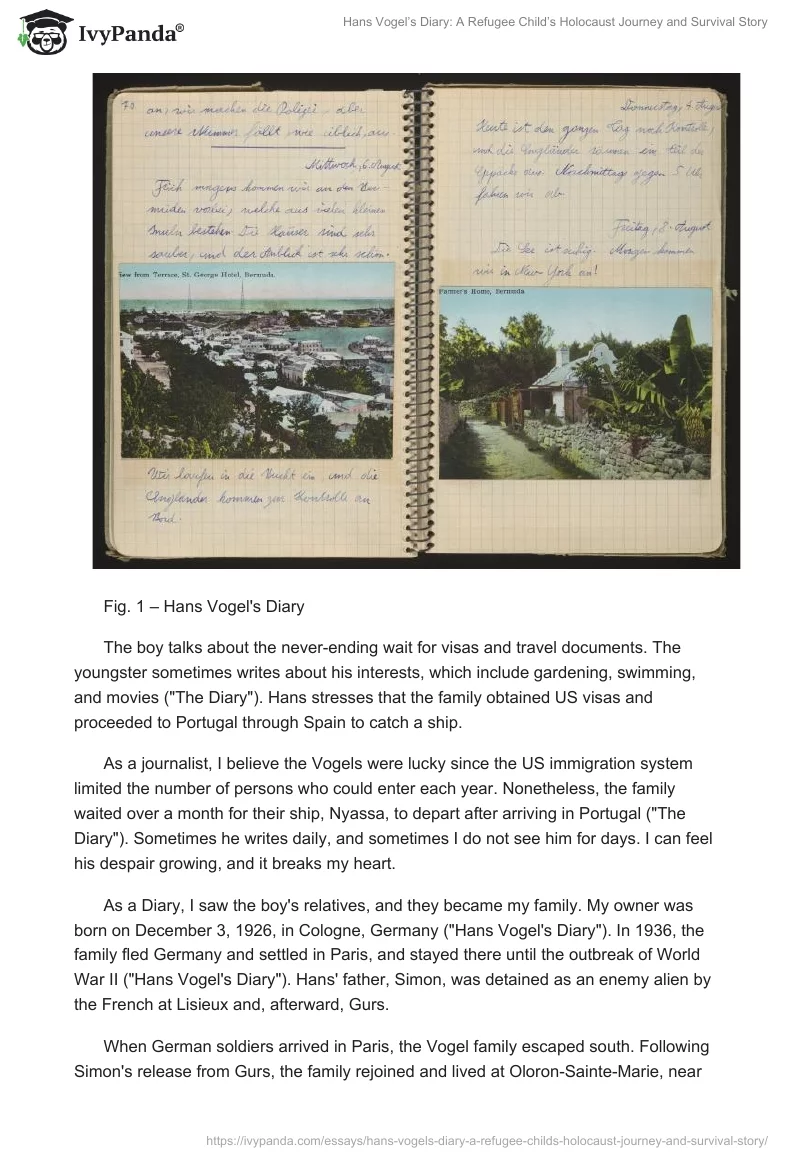 IvyPanda®
Hans Vogel’s Diary: A Refugee Child’s Holocaust Journey and Survival Story
70
an, wir machen die Polizei - aber
unsere Nummer fällt wie üblich, aus.
Mittwoch, 6. August
Früh morgens kommen wir an den Ber-
muden vorbei, welche aus vielen kleinen
Inseln bestehen. Die Häuser sind sehr
sauber, und der Anblick ist sehr schön.
iew from Terrace, St. George Hotel, Bermuda.
Wir laufen in die Bucht ein und die
Engländer kommen zur Kontrolle an
Bord.
Donnerstag, 7. August
Heute ist den ganzen Tag noch Kontrolle,
und die Engländer räumen ein Teil de
Nachmittags gegen 5 Uhr
fahren wir ab.
Freitag, 8. August
Die See ist ruhig. Morgen kommen
wir in New-York an!
Farmer's Home, Bermuda
Fig. 1 – Hans Vogel's Diary
The boy talks about the never-ending wait for visas and travel documents. The
youngster sometimes writes about his interests, which include gardening, swimming,
and movies ("The Diary"). Hans stresses that the family obtained US visas and
proceeded to Portugal through Spain to catch a ship.
As a journalist, I believe the Vogels were lucky since the US immigration system
limited the number of persons who could enter each year. Nonetheless, the family
waited over a month for their ship, Nyassa, to depart after arriving in Portugal ("The
Diary"). Sometimes he writes daily, and sometimes I do not see him for days. I can feel
his despair growing, and it breaks my heart.
As a Diary, I saw the boy's relatives, and they became my family. My owner was
born on December 3, 1926, in Cologne, Germany ("Hans Vogel's Diary"). In 1936, the
family fled Germany and settled in Paris, and stayed there until the outbreak of World
War II ("Hans Vogel's Diary"). Hans' father, Simon, was detained as an enemy alien by
the French at Lisieux and, afterward, Gurs.
When German soldiers arrived in Paris, the Vogel family escaped south. Following
Simon's release from Gurs, the family rejoined and lived at Oloron-Sainte-Marie, near
https://ivypanda.com/essays/hans-vogels-diary-a-refugee-childs-holocaust-journey-and-survival-story/